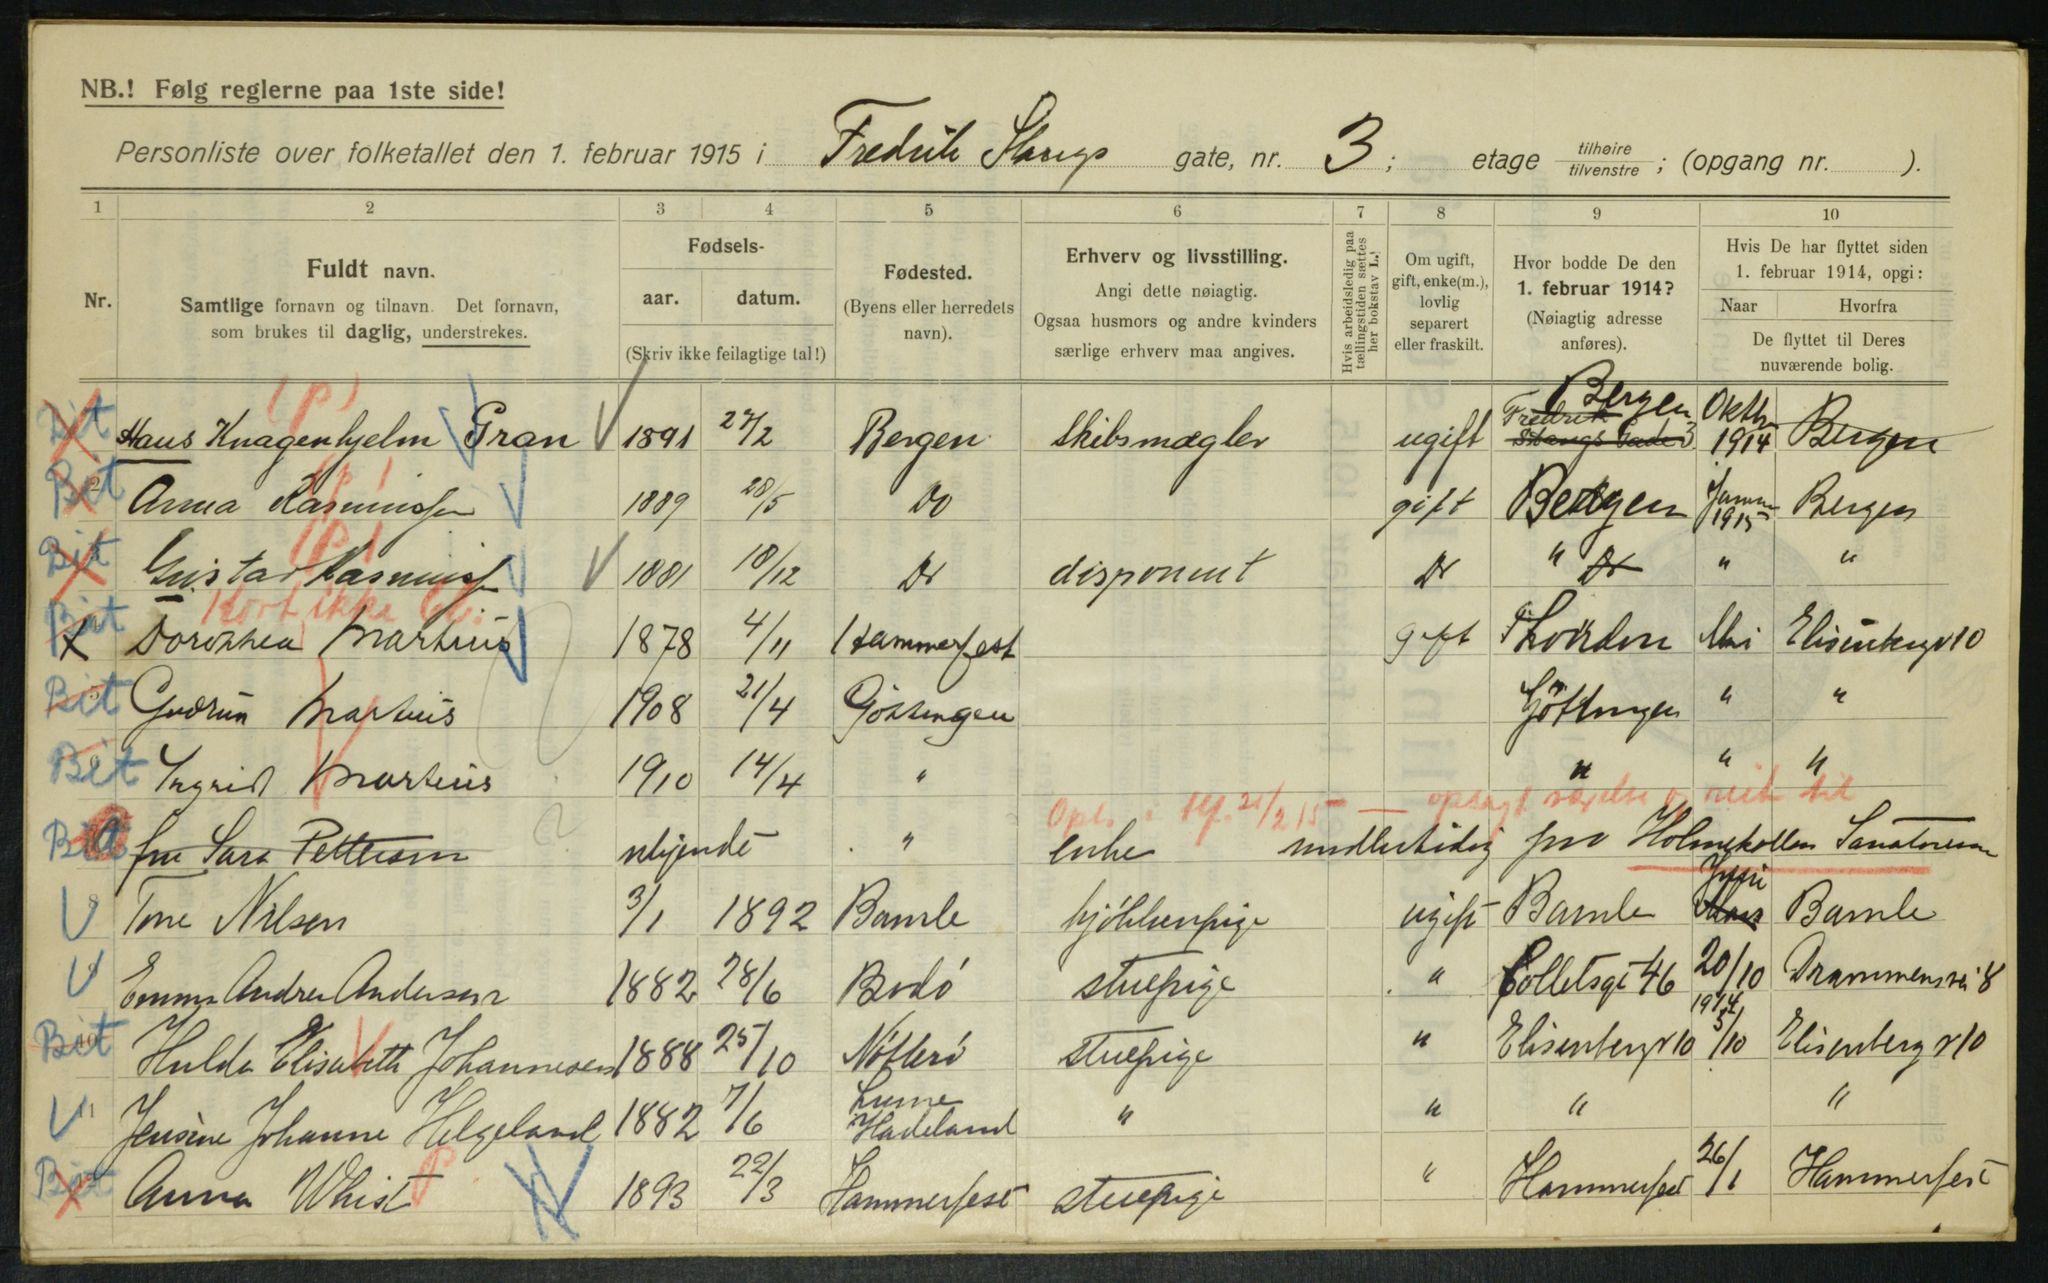 NB.! Følg reglerne paa 1ste side!
Personliste over folketallet den 1. februar 1915 i Fredrik Stangs gate, nr. 3; etage tilhøire / tilvenstre ; (opgang nr. ).
1 2 3 4 5 6 7 8 9 10
Nr.
Fuldt navn.
Samtlige fornavn og tilnavn. Det fornavn,
som brukes til daglig, understrekes.
Fødsels-
aar. datum.
(Skriv ikke feilagtige tal!)
Fødested.
(Byens eller herredets
navn).
Erhverv og livsstilling.
Angi dette nøiagtig.
Ogsaa husmors og andre kvinders
særlige erhverv maa angives.
Hvis arbeidsledig paa
tællingstiden sættes
her bokstav L.
Om ugift,
gift, enke(m.),
lovlig
separert
eller fraskilt.
Hvor bodde De den
1. februar 1914?
(Nøiagtig adresse
anføres).
Hvis De har flyttet siden
1. februar 1914, opgi:
Naar Hvorfra
De flyttet til Deres
nuværende bolig.
Bit (p) Hans Knagenhjelm Gran 1891 27/2 Bergen skibsmægler ugift Fredrik Stangs Gade 3 Bergen Oktbr 1914 Bergen
Bit 2 (p) Anna Rasmussen 1889 28/5 Do gift Bergen Januar 1915 Bergen
Bit (p) Gustav Rasmussen 1881 18/12 Do disponent Do " Do " "
Kort ikke
Bit Dorothea Martius 1878 4/11 Hammerfest gift Mai Elisenbergv 10
Bit Gudrun Martius 1908 21/4 Göttingen Göttingen " "
Bit Ingrid Martius 1910 14/4 " " " "
21/2 15
Bit fru Sara Pettersen ukjendt " enke midlertidig paa Holmekollen Sanatorium
8 Tone Nilsen 3/1 1892 Bamle kjökkenpige ugift Bamle Juni Bamle
Emma Andrea Andersen 1882 28/6 Bodö stuepige " Colletsgt 46 20/10 1914 Drammensvei 8
Bit 10 Hulda Elisabeth Johannesen 1888 25/10 Nötterö stuepige " Elisenbergv 10 5/10 Elisenbergv 10
11 Jensine Johanne Helgeland 1882 7/6 Hadeland " " " "
Bit Anna Whist P 1893 22/3 Hammerfest stuepige " Hammerfest 26/1 Hammerfest